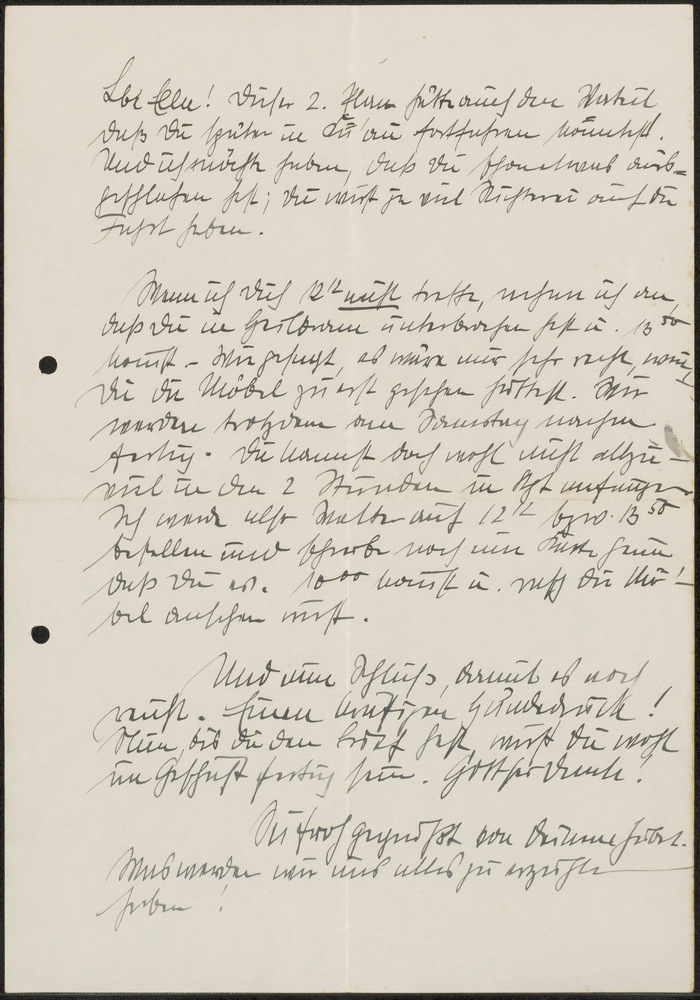 Lbe Elle! Dieser 2. Plan hätte auch den Vorteil
daß Du später in fortfahren könntest.
Und ich möchte haben, daß Du schon etwas aus-
geschlafen hast; Du wirst ja viel auf die
Fahrt haben.
Wenn ich Dich 12 nicht treffe, nehme ich an,
daß Du in unterbrochen hast u. 13⁵⁰
kommst. - Wie gesagt, es wäre mir sehr recht, wenn
Du die Möbel zuerst gesehen hättest. Wir
werden trotzdem am Samstag nachm.
fertig. Du kannst doch wohl nicht allzu-
viel in den 2 Stunden in anfangen
Ich werde also Mutter auf 12 bzw. 13⁵⁰
bestellen und schreibe noch eine Karte heim
daß Du ev. 10⁰⁰ kommst u. rasch die Mö-
bel ansehen wirst.
Und nun Schluß, damit es noch
reicht. Einen kräftigen Händedruck!
Nun, bis Du den Brief hast, wirst Du wohl
im Geschäft fertig sein. Gott sei Dank!
Sei froh gegrüßt von Deinem Hubert.
Was werden wir uns alles zu erzählen
haben!